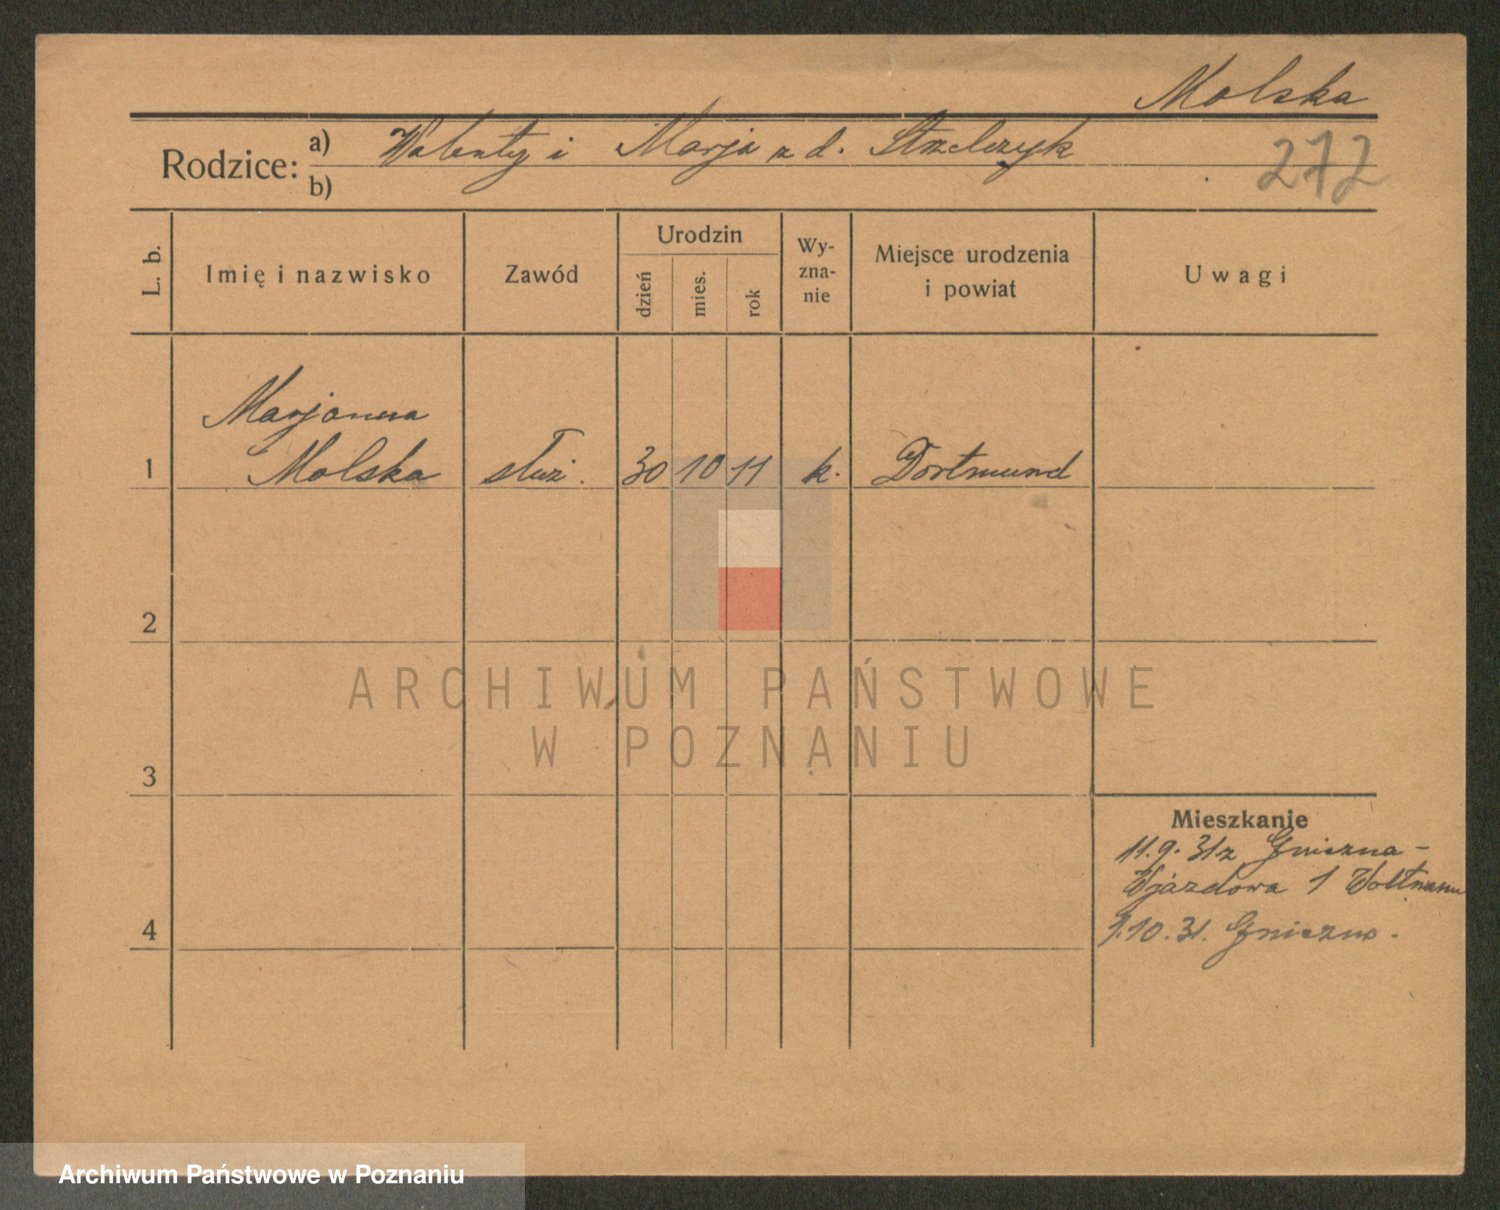 Molska
Rodzice:
a) Walenty i Marja z d. Strzelczyk
b)
272
L. b.
Imię i nazwisko
Zawód
Urodzin
dzień
mies.
rok
Wy-
zna-
nie
Miejsce urodzenia
i powiat
Uwagi
Marjanna
1 Molska służ. 30 10 11 k. Dortmund
2
3
4
Mieszkanie
11.9.31 z Gniezna -
Wjazdowa 1
1.10.31. Gniezno.
ARCHIWUM PAŃSTWOWE
W POZNANIU
Archiwum Państwowe w Poznaniu